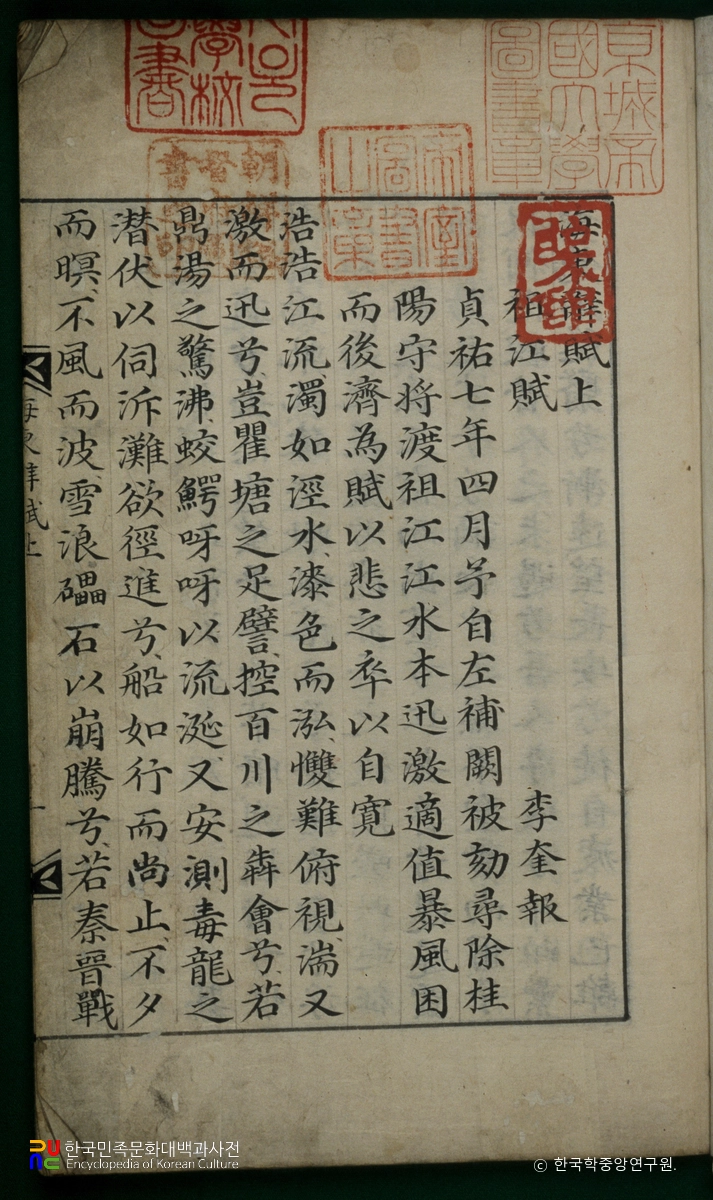 海東辭賦上
祖江賦
李奎報
貞祐七年四月予自左補闕被劾尋除桂
陽守将渡祖江江水本迅激適值暴風困
而後濟為賦以悲之卒以自寬
浩浩江流濁如涇水漆色而泓䉶難俯視湍又
激而迅兮豈瞿塘之足譬控百川之犇會兮若
鼎湯之驚沸蛟鰐呀呀以流涎又安測毒龍之
潜伏以伺泝灘欲徑進兮船如行而尚止不夕
而暝不風而波雪浪礧石以崩騰兮若秦晉戰
海東辭賦上
一
京城帝國大學圖書章
帝室圖書之章
朝鮮總督府圖書
한국민족문화대백과사전
Encyclopedia of Korean Culture
ⓒ 한국학중앙연구원.